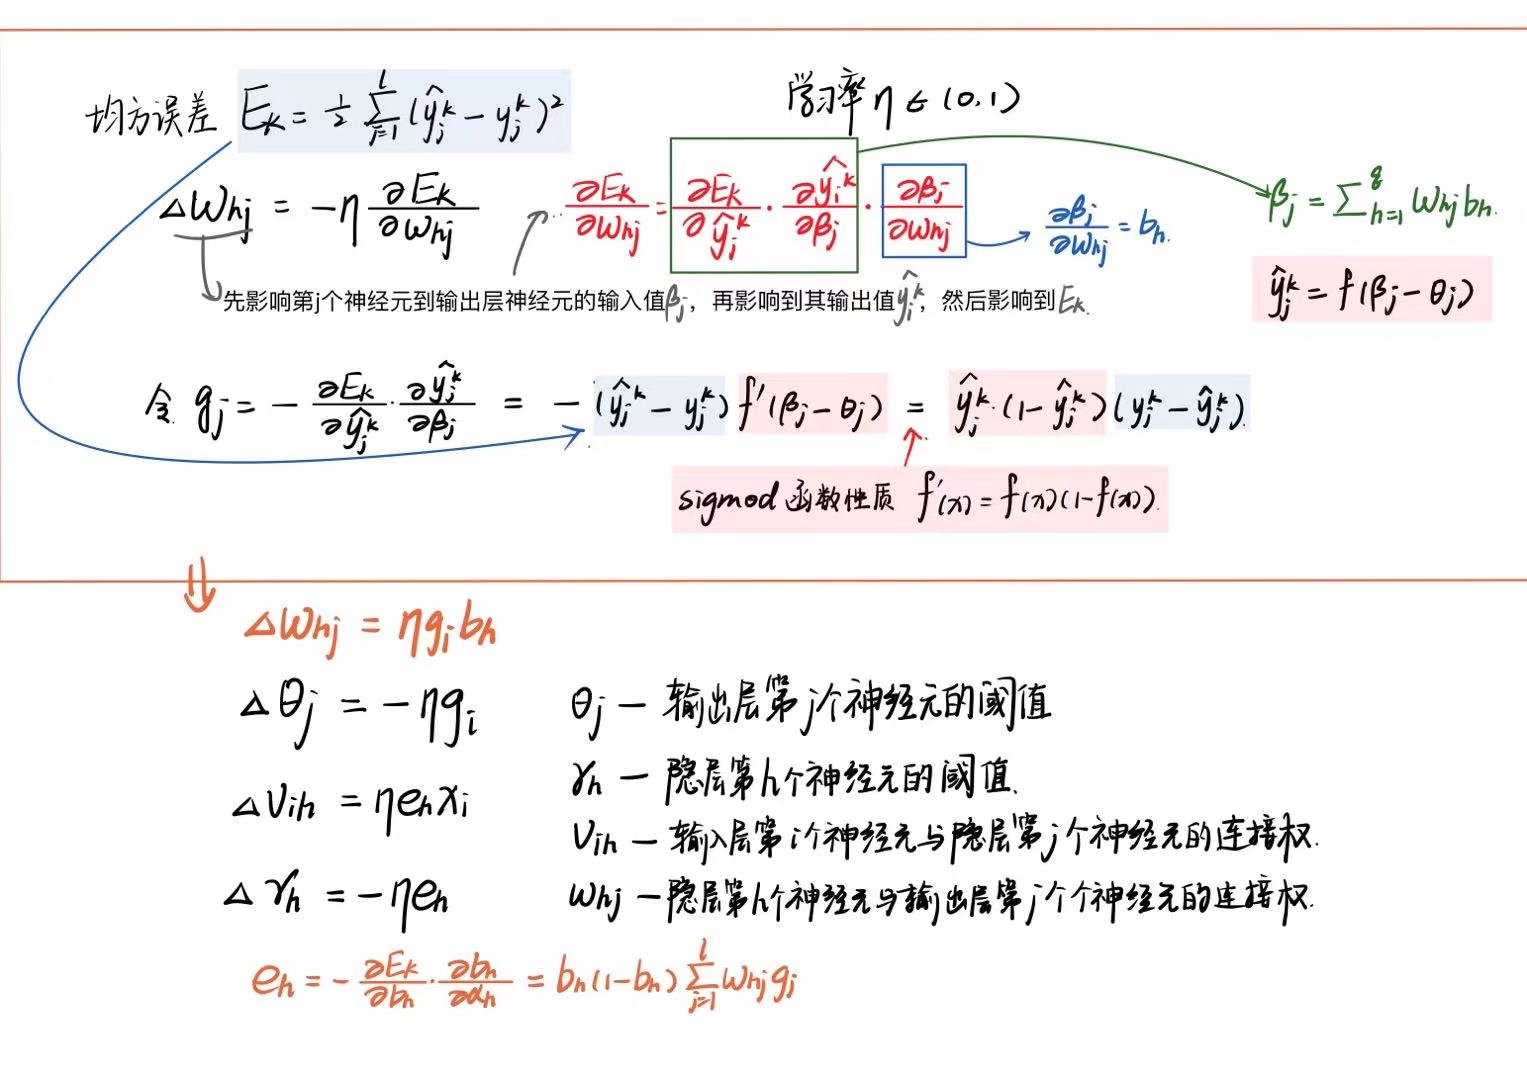 均方误差 E_k = 1/2 ∑_{j=1}^{l} (ŷ_j^k − y_j^k)²
学习率 η ∈ (0,1)
Δw_hj = −η ∂E_k/∂w_hj
∂E_k/∂w_hj = ∂E_k/∂ŷ_j^k · ∂ŷ_j^k/∂β_j · ∂β_j/∂w_hj
∂β_j/∂w_hj = b_h.
β_j = ∑_{h=1}^{q} w_hj b_h.
ŷ_j^k = f(β_j − θ_j)
先影响第j个神经元到输出层神经元的输入值β_j，再影响到其输出值ŷ_j^k，然后影响到E_k.
令 g_j = − ∂E_k/∂ŷ_j^k · ∂ŷ_j^k/∂β_j = −(ŷ_j^k − y_j^k) f′(β_j − θ_j) = ŷ_j^k·(1−ŷ_j^k)(y_j^k − ŷ_j^k).
sigmod 函数性质 f′(x) = f(x)(1−f(x)).
⇓
Δw_hj = ηg_i b_h
Δθ_j = −ηg_i
θ_j — 输出层第j个神经元的阈值
γ_h — 隐层第h个神经元的阈值.
Δv_ih = ηe_h x_i
v_ih — 输入层第i个神经元与隐层第j个神经元的连接权.
Δγ_h = −ηe_h
w_hj — 隐层第h个神经元与输出层第j个个神经元的连接权.
e_h = − ∂E_k/∂b_h · ∂b_h/∂α_h = b_h(1−b_h) ∑_{j=1}^{l} w_hj g_j